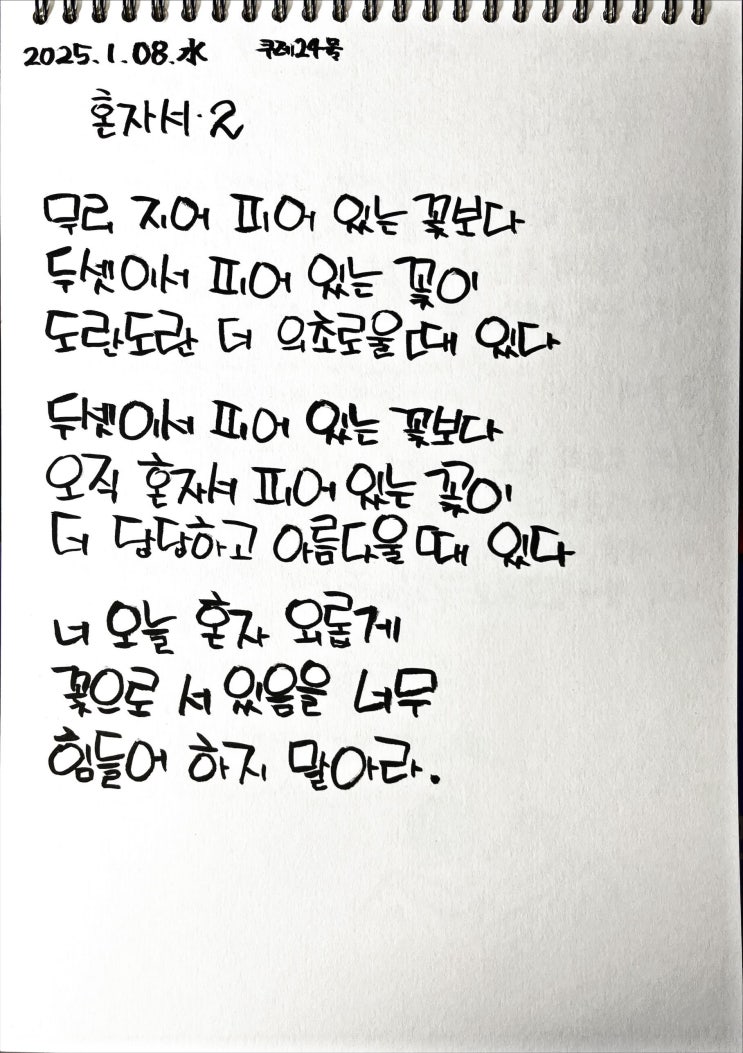 2025.1.08.水 쿠레24복
혼자서·2
무리 지어 피어 있는 꽃보다
두셋이서 피어 있는 꽃이
도란도란 더 의초로울 때 있다
두셋이서 피어 있는 꽃보다
오직 혼자서 피어있는 꽃이
더 당당하고 아름다울 때 있다
너 오늘 혼자 외롭게
꽃으로 서 있음을 너무
힘들어 하지 말아라.